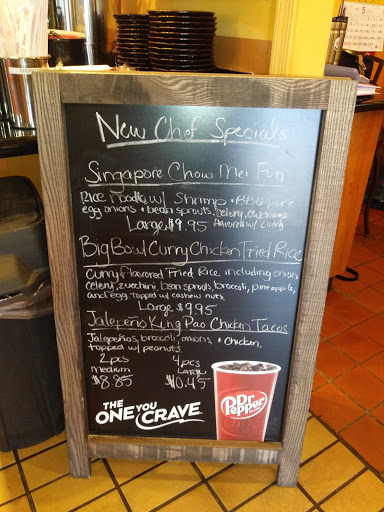 New Chef Specials
Singapore Chow Mei Fun
Rice Noodle w/ Shrimp + BBQ pork
egg onions + bean sprouts, celery,
Large $9.95 flavored w/ curry
Big Bowl Curry Chicken Fried Rice
Curry flavored Fried Rice including onion,
celery, zucchini, bean sprouts, broccoli, pineapple,
and egg topped w/ cashew nuts
Large $9.95
Jalepeño Kung Pao Chicken Tacos
Jalapeños, broccoli, onions, + chicken,
topped w/ peanuts
2pcs 4pcs
medium Large
$8.85 $10.45
THE
ONE YOU
CRAVE
Dr
Pepper
23
5